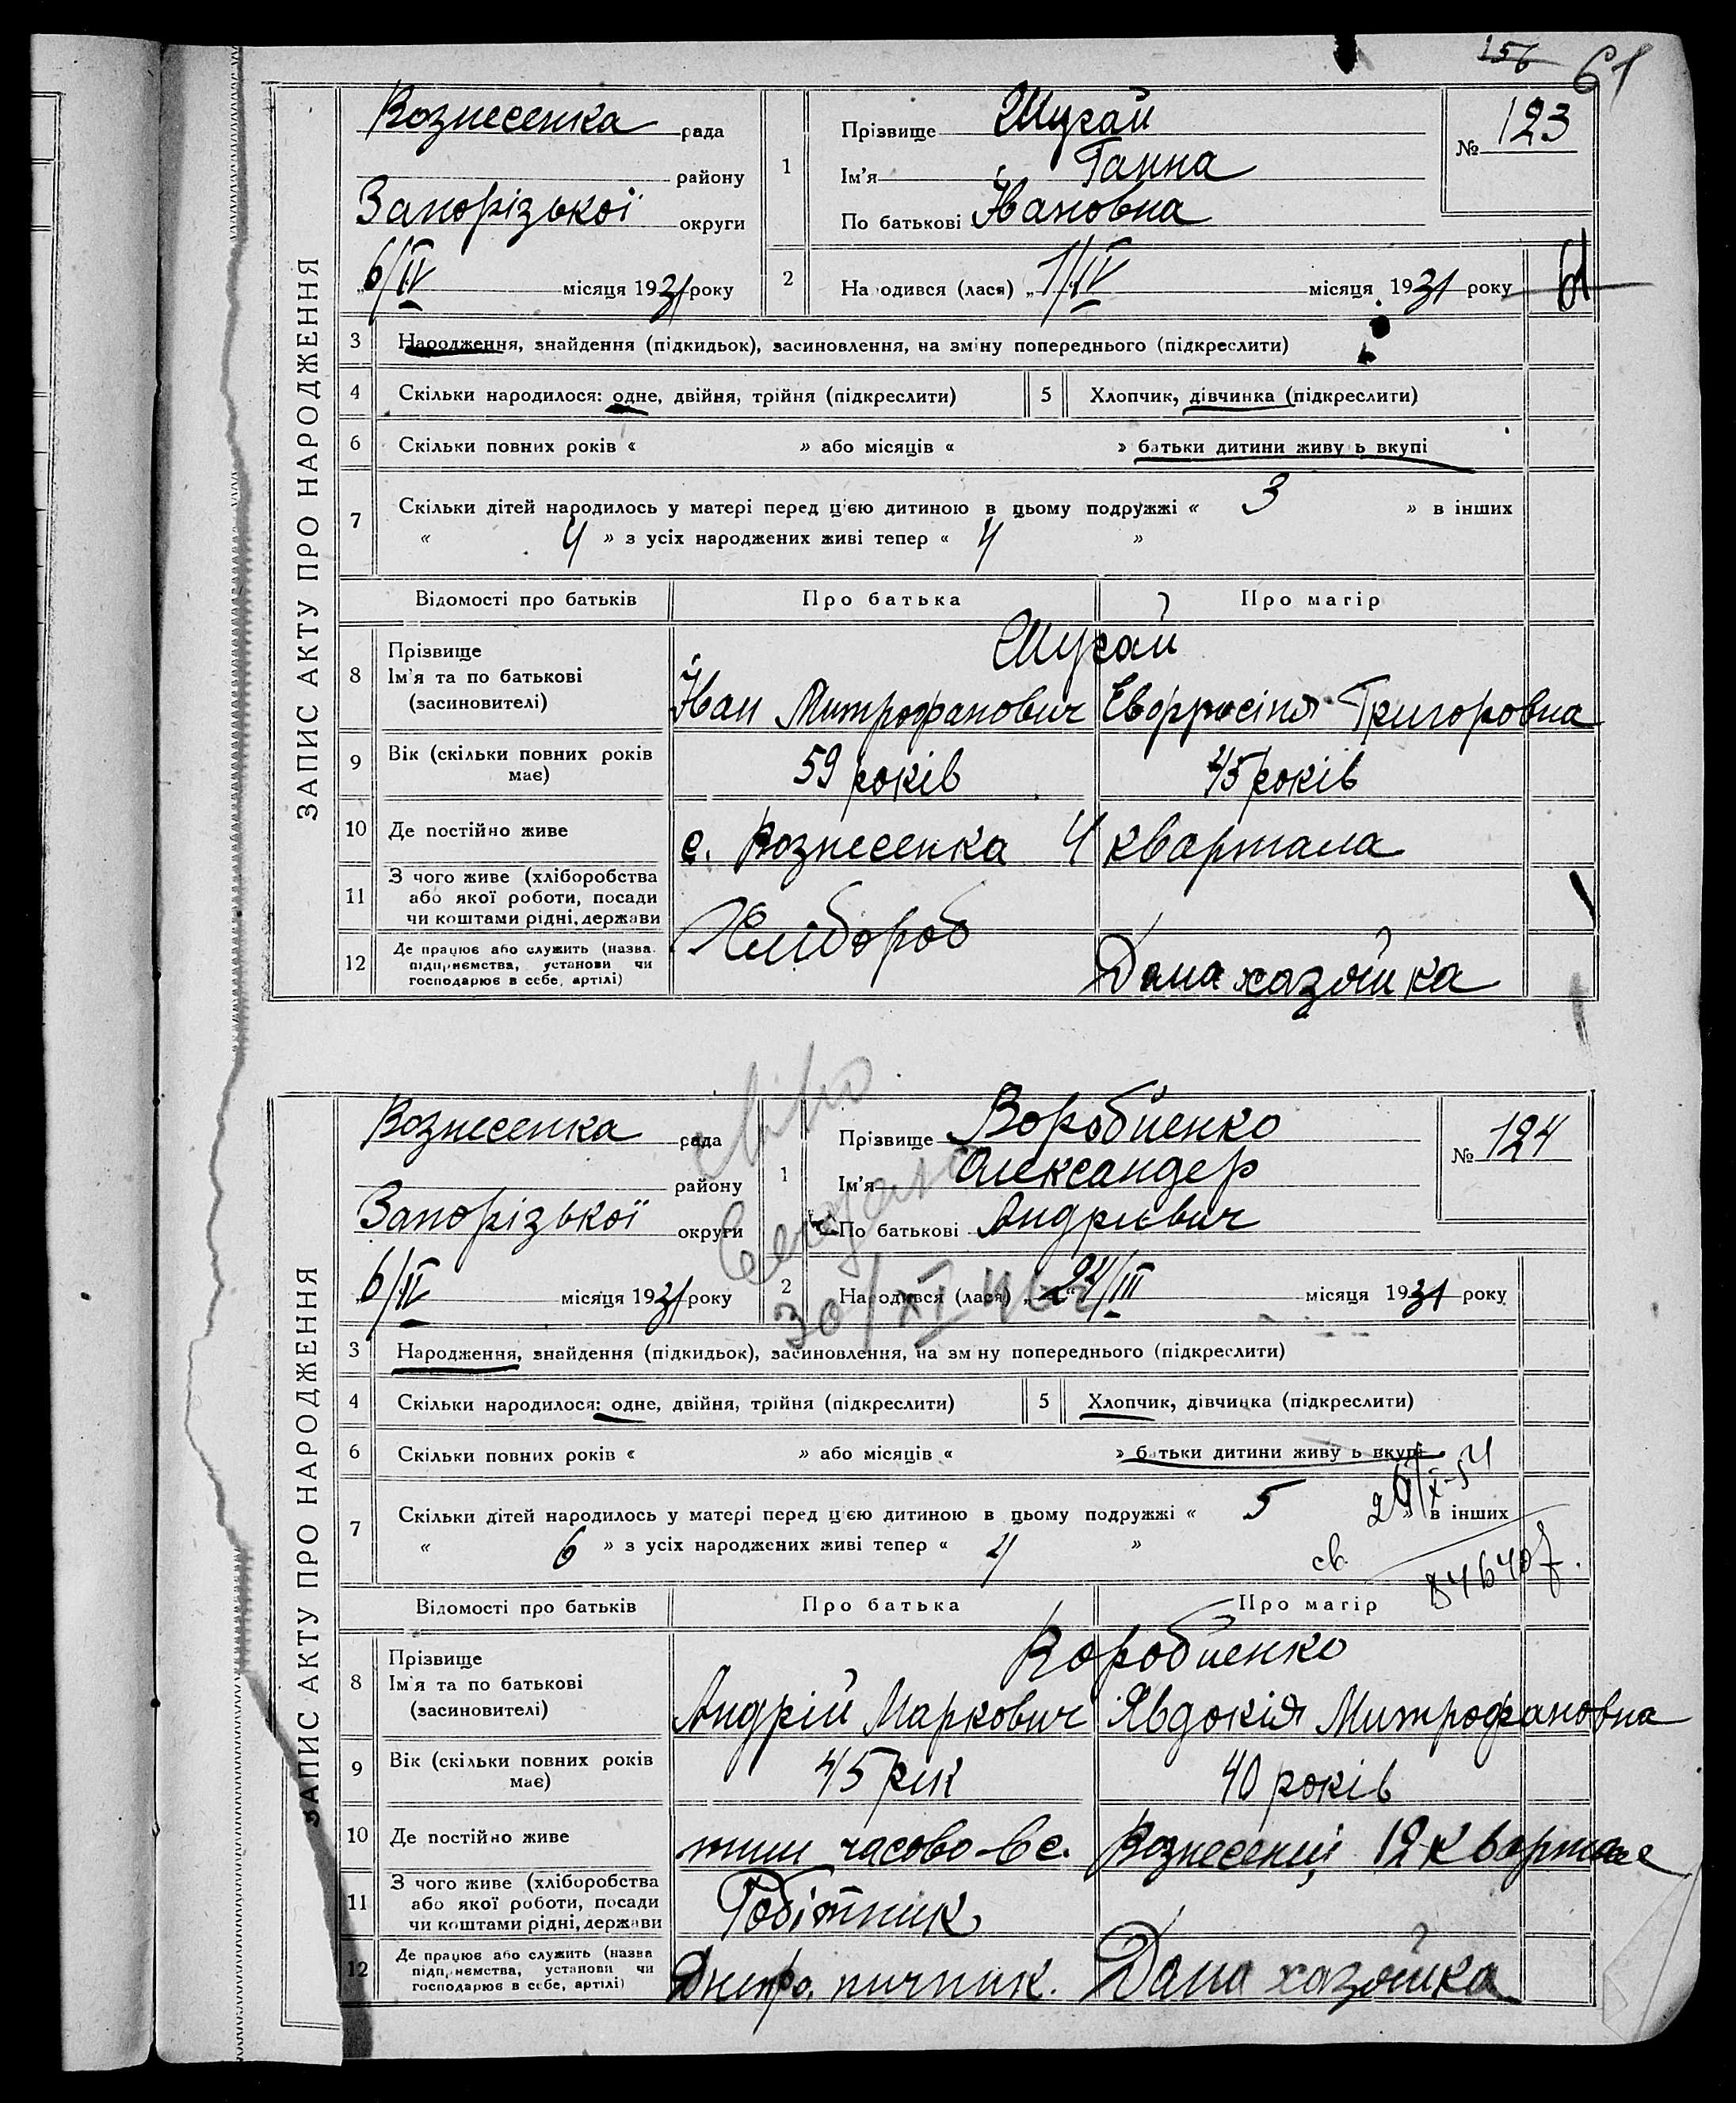 156 61
ЗАПИС АКТУ ПРО НАРОДЖЕННЯ
Вознесенка рада
району
Запорізької округи
6/IV місяця 1931 року
1 Прізвище Шугай
Ім'я Ганна
По батькові Івановна
№ 123
2 На одився (лася) „1/IV місяця 1931 року
61
3 Народження, знайдення (підкидьок), засиновлення, на зміну попереднього (підкреслити)
4 Скільки народилося: одне, двійня, трійня (підкреслити) 5 Хлопчик, дівчинка (підкреслити)
6 Скільки повних років « » або місяців « » батьки дитини живу ь вкупі
7 Скільки дітей народилось у матері перед цією дитиною в цьому подружжі « 3 » в інших
« 4 » з усіх народжених живі тепер « 4 »
Відомості про батьків Про батька Про матір
8 Прізвище Шугай
Ім'я та по батькові
(засиновителі) Іван Митрофанович Евфросінія Григоровна
9 Вік (скільки повних років має) 59 років 45 років
10 Де постійно живе с. Вознесенка 4 квартала
11 З чого живе (хліборобства
або якої роботи, посади
чи коштами рідні, держави
Хлібороб
12 Де працює або служить (назва
підприємства, установи чи
господарює в себе, артілі)
Дома хазяйка
ЗАПИС АКТУ ПРО НАРОДЖЕННЯ
Вознесенка рада
району
Запорізької округи
6/IV місяця 1931 року
1 Прізвище Воробиенко
Ім'я Олександер
По батькові Андрієвич
№ 124
2 Народився (лася) „24/III місяця 1931 року
30/XI
3 Народження, знайдення (підкидьок), засиновлення, на зм ну попереднього (підкреслити)
4 Скільки народилося: одне, двійня, трійня (підкреслити) 5 Хлопчик, дівчинка (підкреслити)
6 Скільки повних років « » або місяців « » б тьки дитини живу ь вкупі
7 Скільки дітей народилось у матері перед цією дитиною в цьому подружжі « 5 » в інших
« 6 » з усіх народжених живі тепер « 4 »
св.
Відомості про батьків Про батька Про матір
8 Прізвище Воробиенко
Ім'я та по батькові
(засиновителі) Андрій Маркович Явдокія Митрофановна
9 Вік (скільки повних років має) 45 рік 40 років
10 Де постійно живе тим часово в с. Вознесенці 12 квартале
11 З чого живе (хліборобства
або якої роботи, посади
чи коштами рідні, держави
Робітник
12 Де працює або служить (назва
підприємства, установи чи
господарює в себе, артілі)
Дома хазяйка